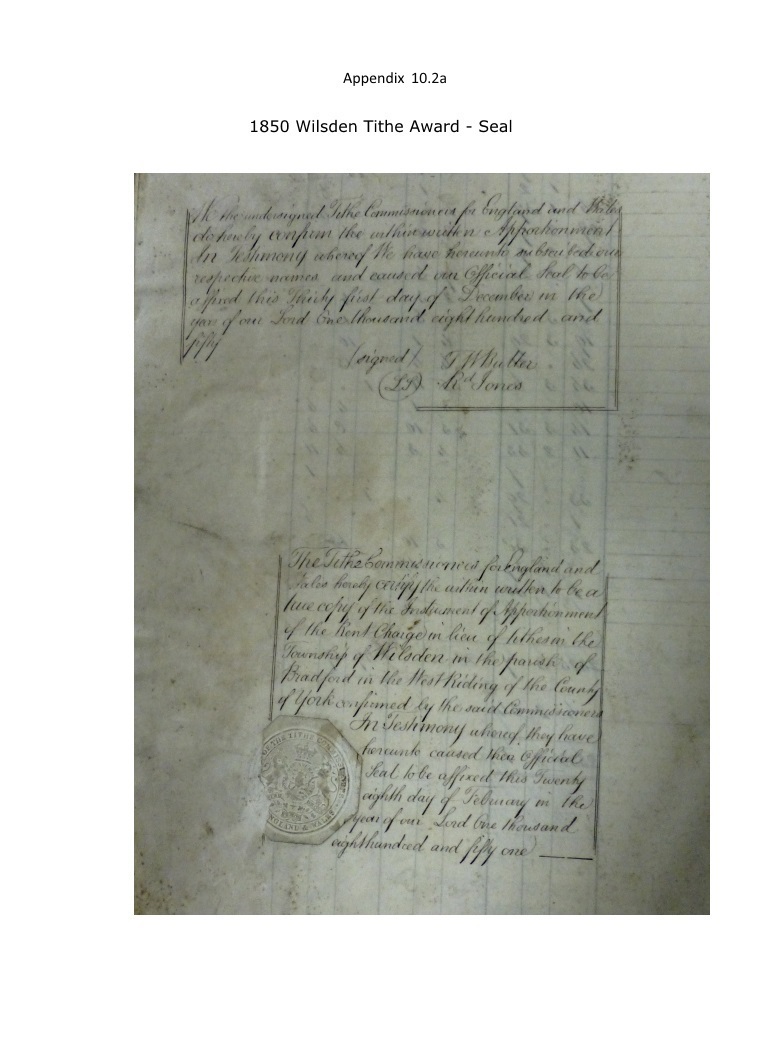 Appendix 10.2a
1850 Wilsden Tithe Award - Seal
We the undersigned Tithe Commissioners for England and Wales
do hereby confirm the within written Apportionment
In Testimony whereof We have hereunto subscribed our
respective names and caused our Official Seal to be
affixed this Thirty first day of December in the
year of our Lord One thousand eight hundred and
fifty
(signed) T W Buller
(L.S) Rd Jones
The Tithe Commissioners for England and
Wales hereby certify the within written to be a
true copy of the Instrument of Apportionment
of the Rent Charge in lieu of tithes in the
Township of Wilsden in the parish of
Bradford in the West Riding of the County
of York confirmed by the said Commissioners
In Testimony whereof they have
hereunto caused their Official
Seal to be affixed this Twenty
eighth day of February in the
year of our Lord One thousand
eight hundred and fifty one